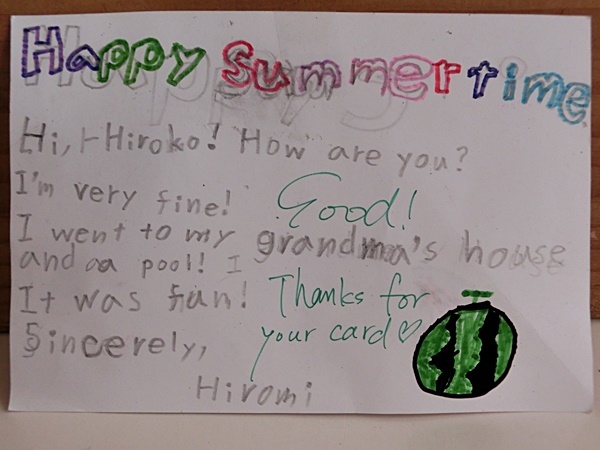 Happy Summertime
Hi, Hiroko! How are you?
I'm very fine!
Good!
I went to my grandma's house
and a pool! I
It was fun!
Thanks for
your card♡
Sincerely,
Hiromi